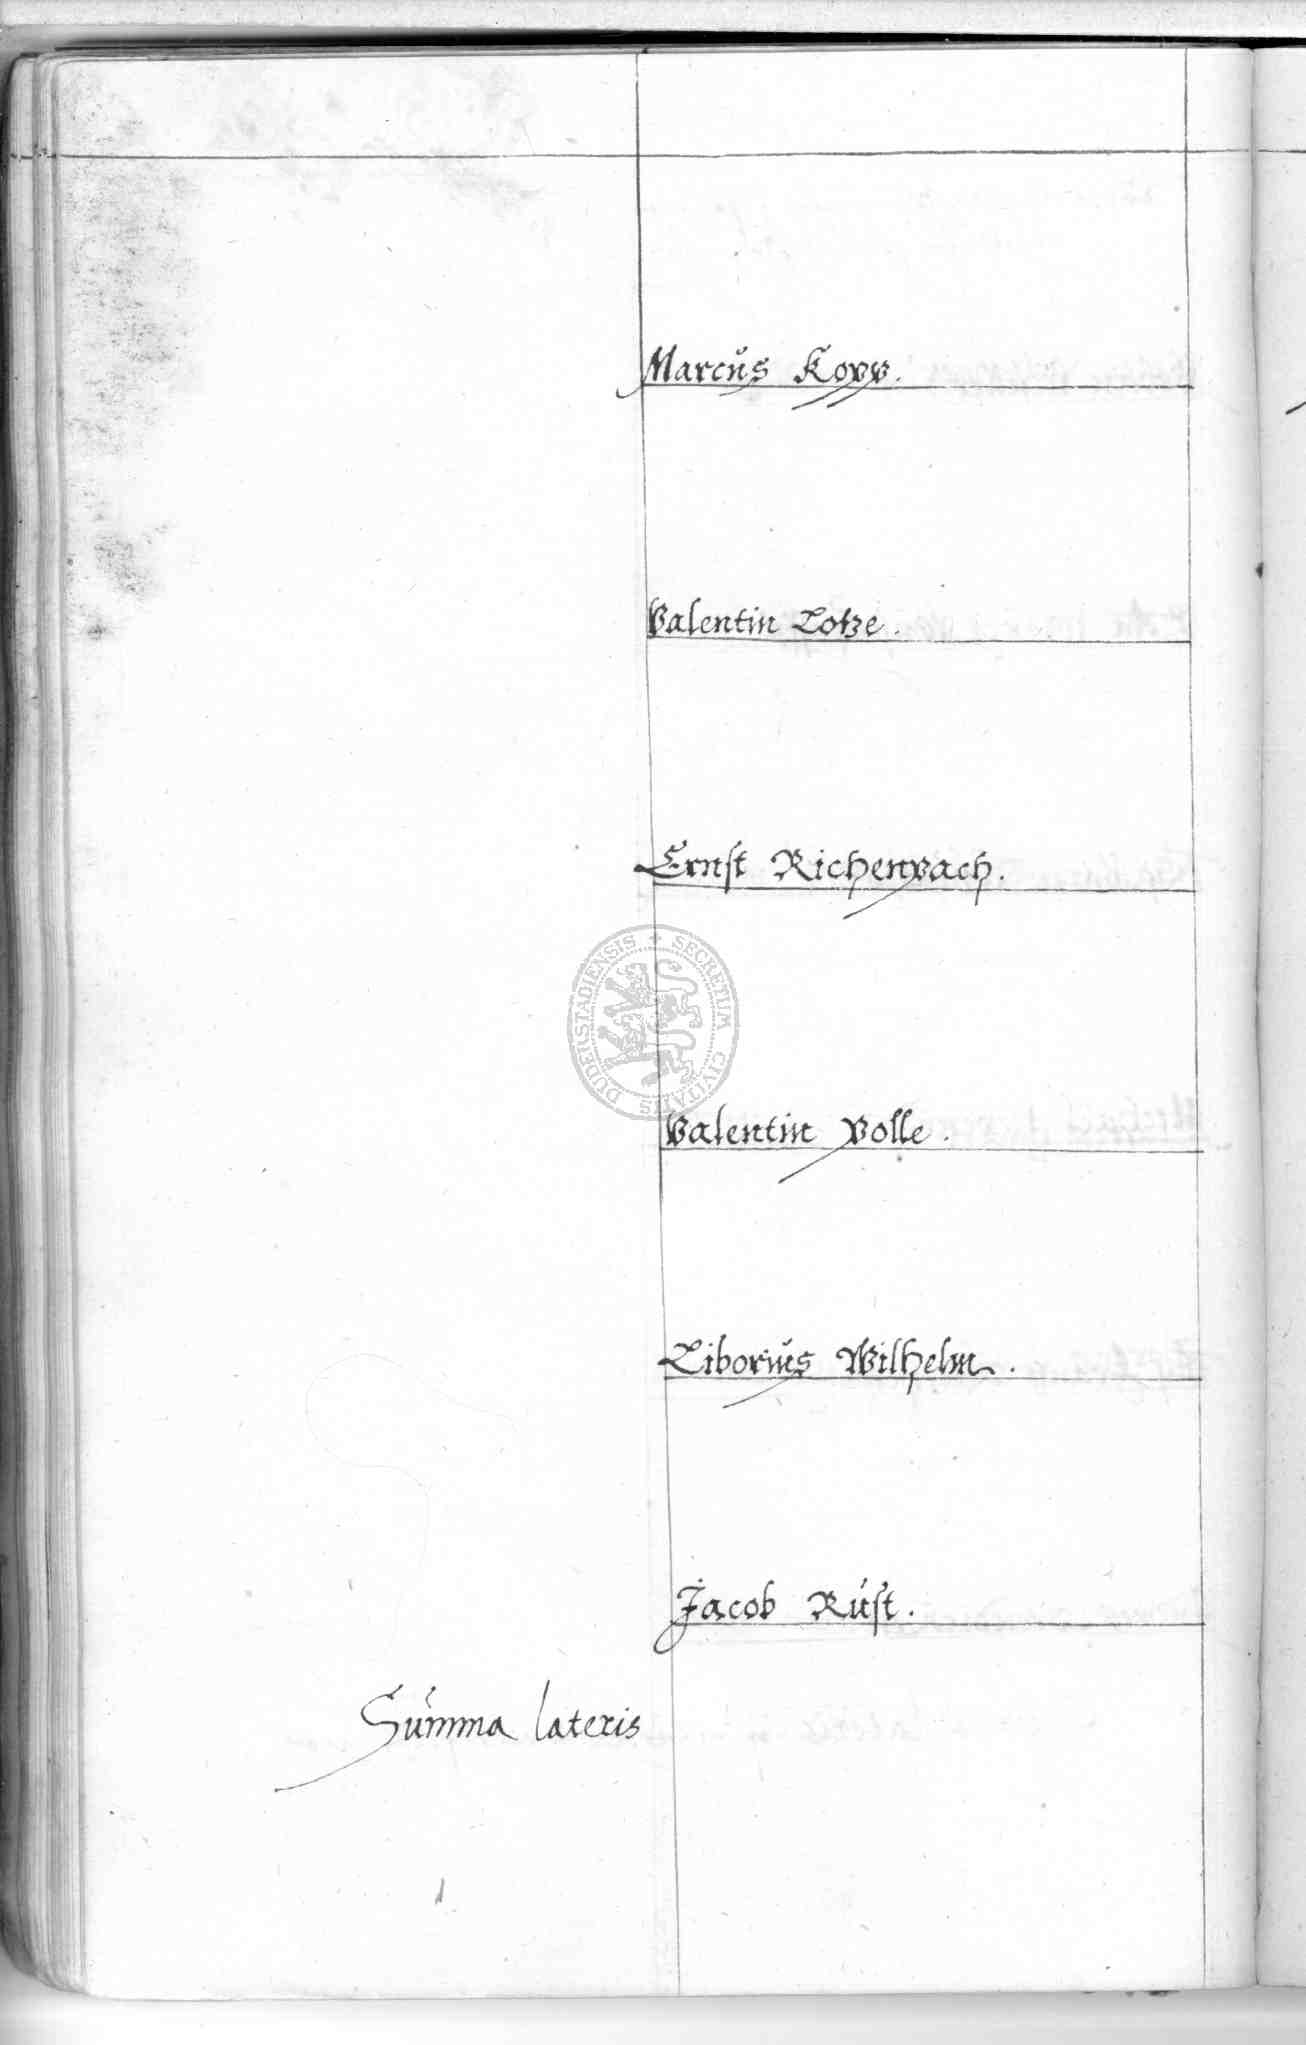 Marcus Kopp.
Valentin Lotze.
Ernst Richenpach.
DUDERSTADIENSIS + SECRETUM CIVITATIS
Valentin Polle.
Liborius Wilhelm.
Jacob Rust.
Summa lateris